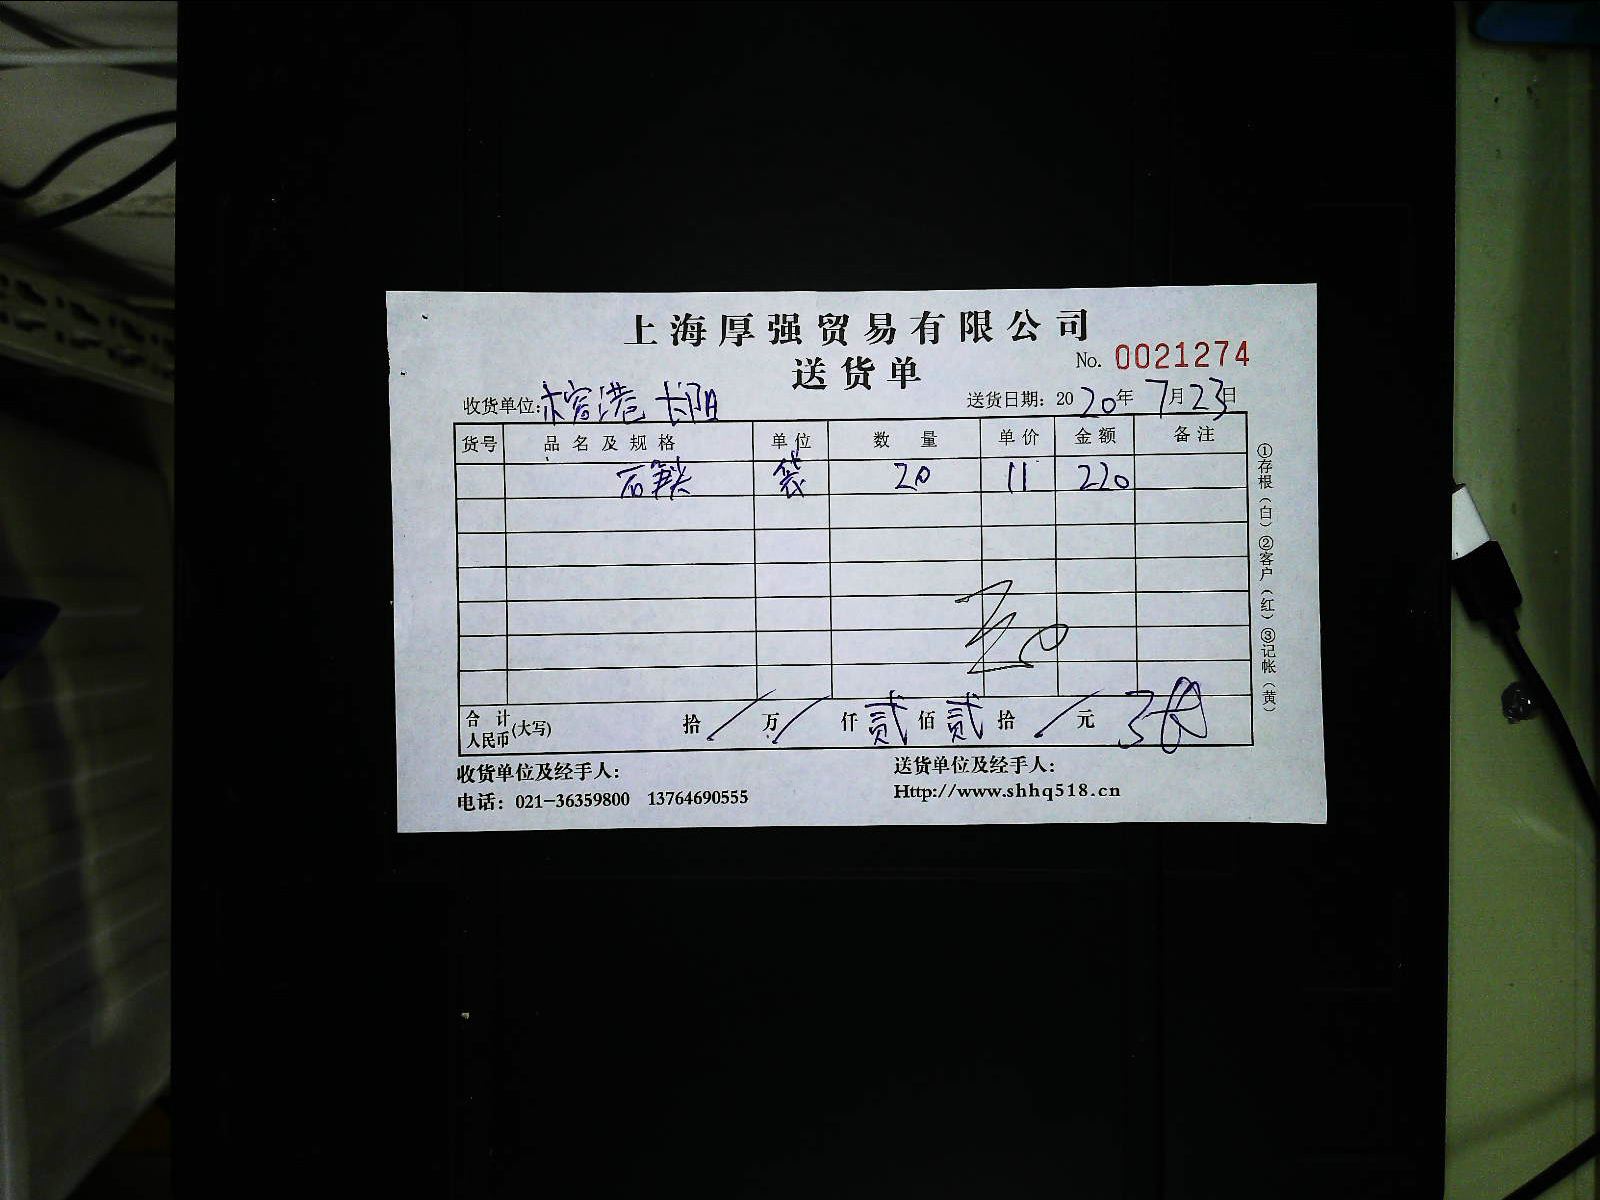 上海厚强贸易有限公司
送货单
No. 0021274
收货单位:榕港 长阳
送货日期: 2020年7月23日
货号 品名及规格 单位 数量 单价 金额 备注
袋 20 11 220
合计人民币(大写) 拾/万/仟贰佰贰拾/元
收货单位及经手人:
送货单位及经手人:
电话: 021-36359800 13764690555
Http://www.shhq518.cn
①存根(白)②客户(红)③记帐(黄)